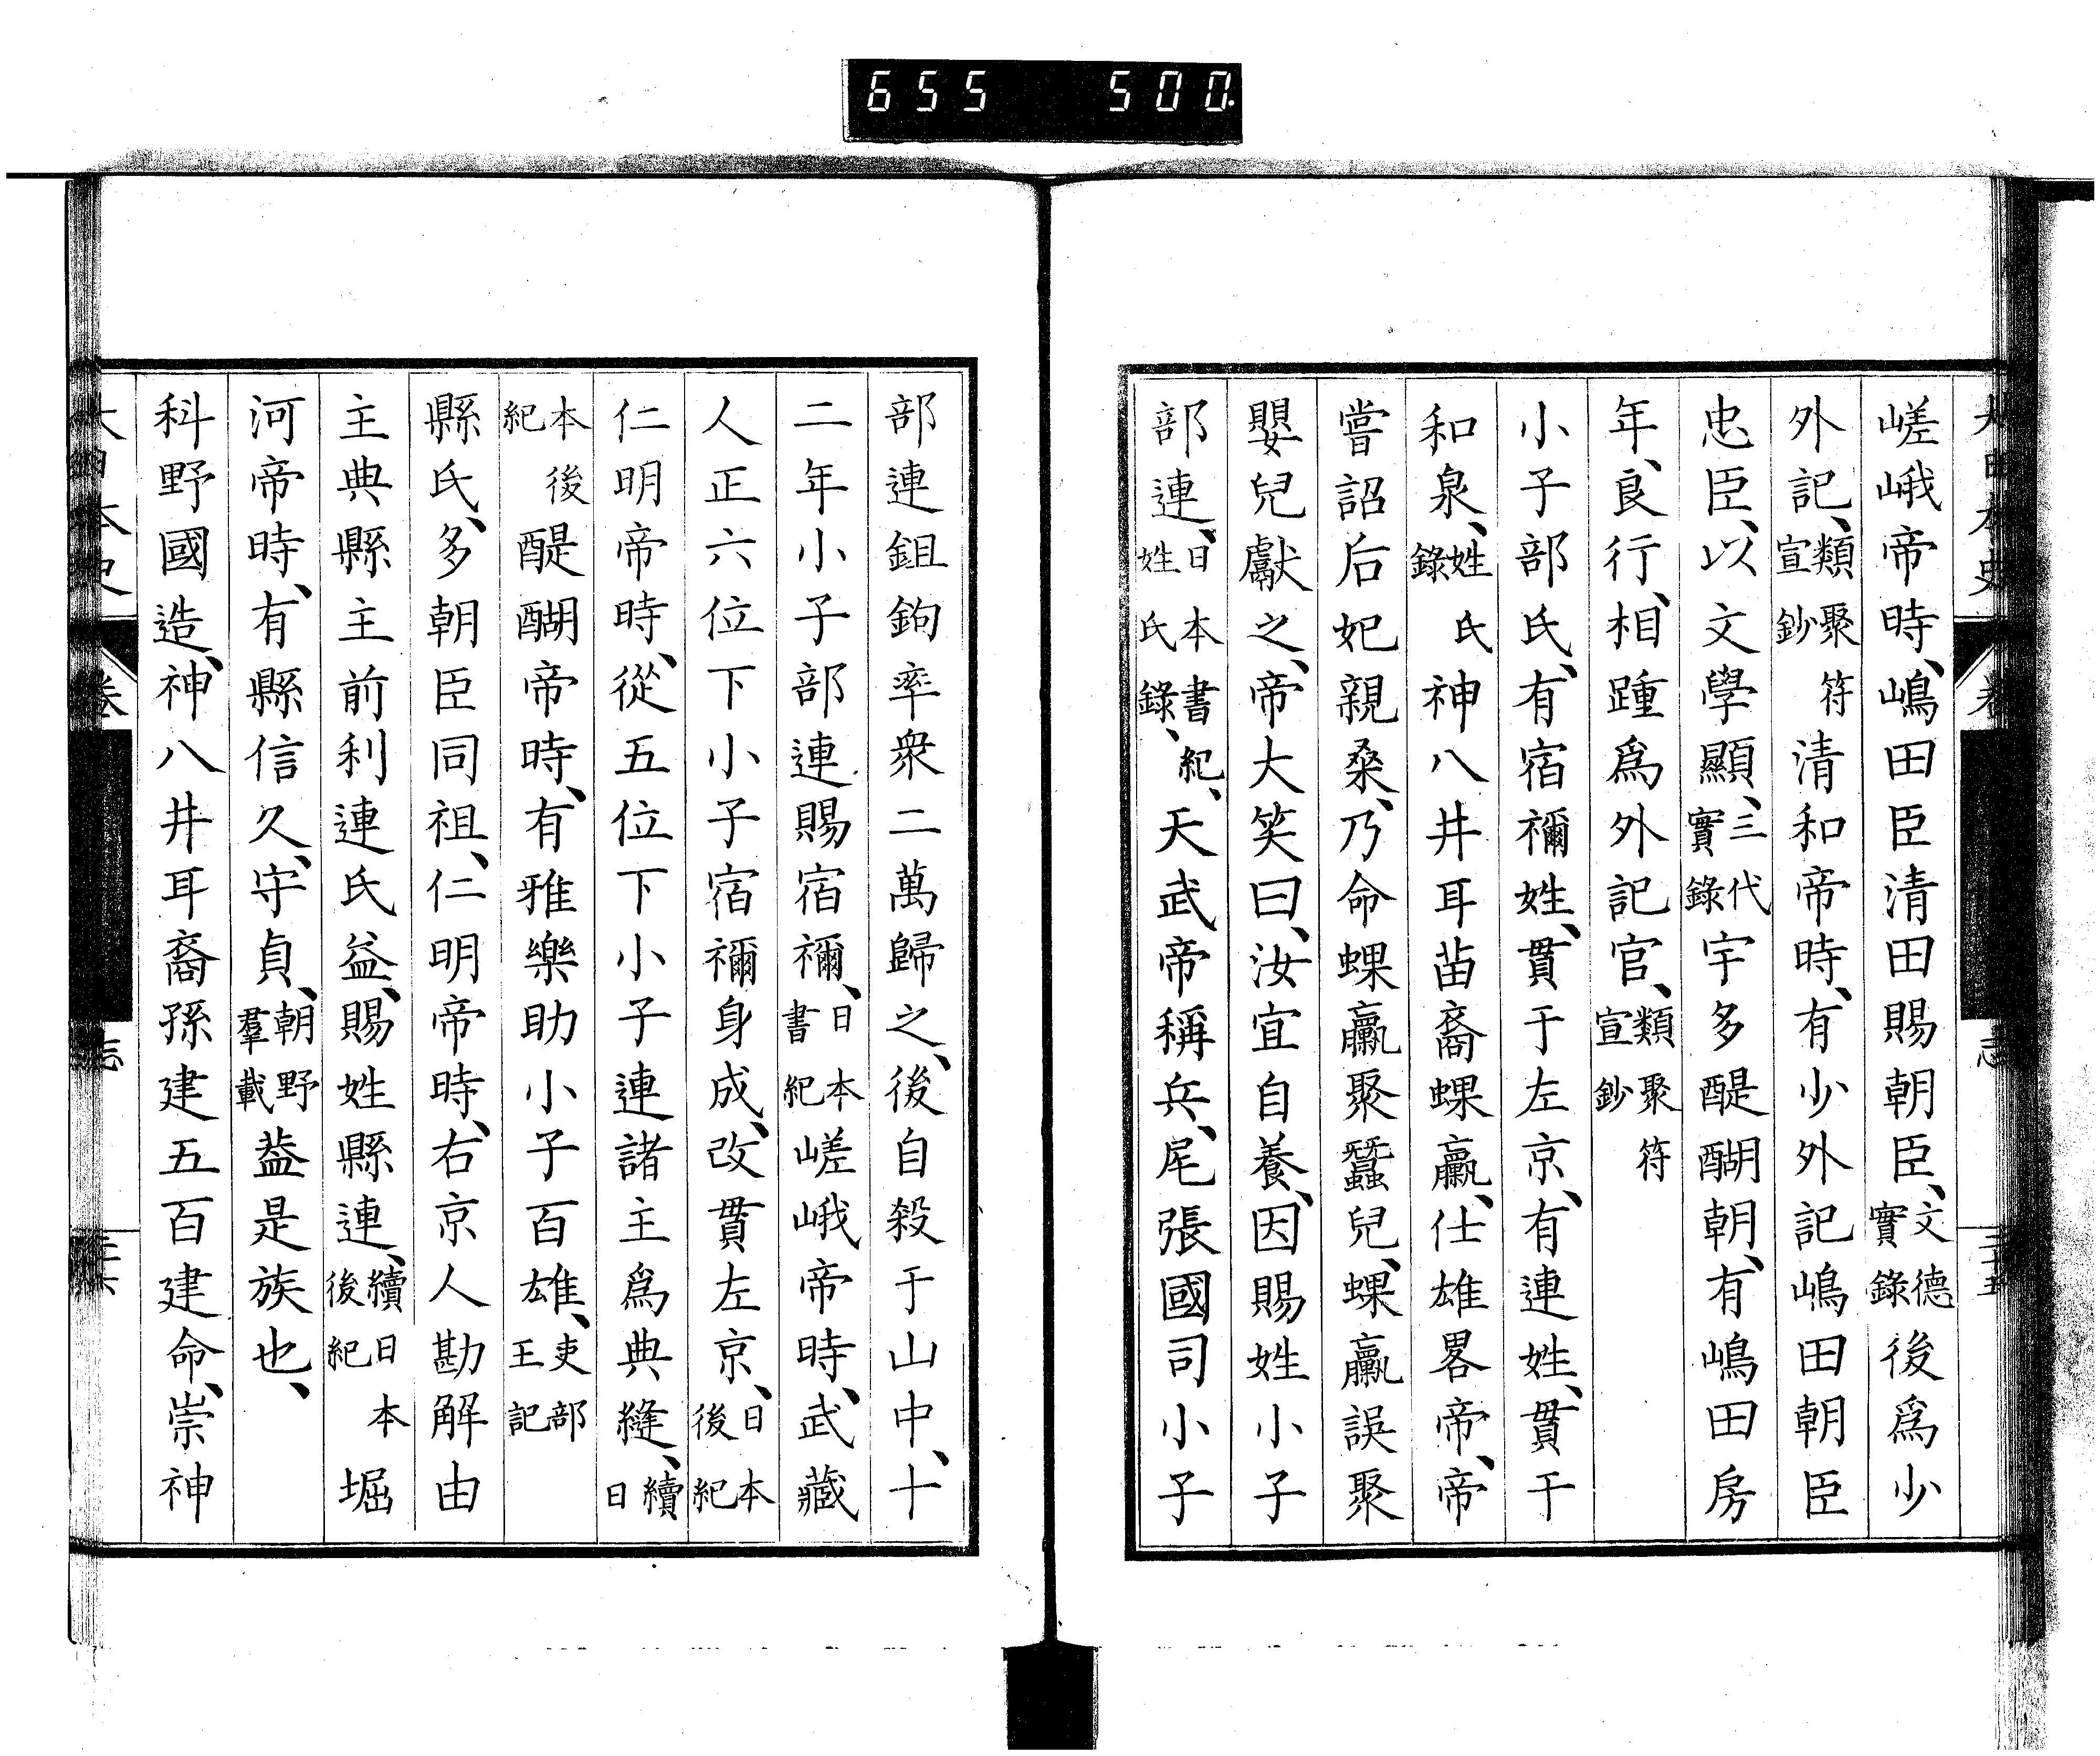 655 500.
嵯峨帝時、嶋田臣清田賜朝臣、文德實錄後爲少
外記、類聚符宣鈔清和帝時、有少外記嶋田朝臣
忠臣、以文學顯、三代實錄宇多醍醐朝、有嶋田房
年、良行、相踵爲外記官、類聚符宣鈔
小子部氏、有宿禰姓、貫于左京、有連姓、貫于
和泉、姓氏錄神八井耳苗裔蜾蠃、仕雄畧帝、帝
嘗詔后妃親桑、乃命蜾蠃聚蠶兒、蜾蠃誤聚
嬰兒獻之、帝大笑曰、汝宜自養、因賜姓小子
部連、日本書紀、姓氏錄、天武帝稱兵、尾張國司小子
部連鉏鉤率衆二萬歸之、後自殺于山中、十
二年小子部連賜宿禰、日本書紀嵯峨帝時、武藏
人正六位下小子宿禰身成、改貫左京、日本後紀
仁明帝時、從五位下小子連諸主爲典縫、續日
本後紀醍醐帝時、有雅樂助小子百雄、吏部王記
縣氏、多朝臣同祖、仁明帝時、右京人勘解由
主典縣主前利連氏益、賜姓縣連、續日本後紀堀
河帝時、有縣信久、守貞、朝野羣載蓋是族也、
科野國造、神八井耳裔孫建五百建命、崇神